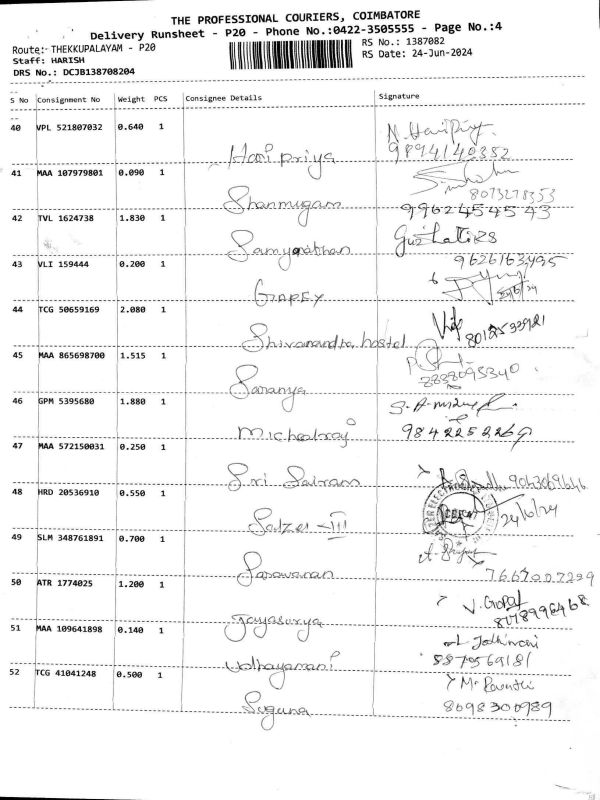 THE PROFESSIONAL COURIERS, COIMBATORE
Delivery Runsheet - P20 - Phone No.:0422-3505555 - Page No.:4
Route: THEKKUPALAYAM - P20
RS No.: 1387082
Staff: HARISH
RS Date: 24-Jun-2024
DRS No.: DCJB138708204
S No Consignment No Weight PCS Consignee Details Signature
40 VPL 521807032 0.640 1
Hari priya
9894140352
41 MAA 107979801 0.090 1
Shanmugam
8073278353
42 TVL 1624738 1.830 1
9962454543
43 VLI 159444 0.200 1
9626163495
44 TCG 50659169 2.080 1
Shivanandha hostel
8012533921
45 MAA 865698700 1.515 1
Saranya
46 GPM 5395680 1.880 1
Michealraj
9842252269
47 MAA 572150031 0.250 1
Sri Sairam
9043069646
48 HRD 20536910 0.550 1
Salzer - III
24/6/24
49 SLM 348761891 0.700 1
Saravanan
7667007299
50 ATR 1774025 1.200 1
Jayasurya
V. Gopal
51 MAA 109641898 0.140 1
Udhayamani
52 TCG 41041248 0.500 1
Suguna
8098300989